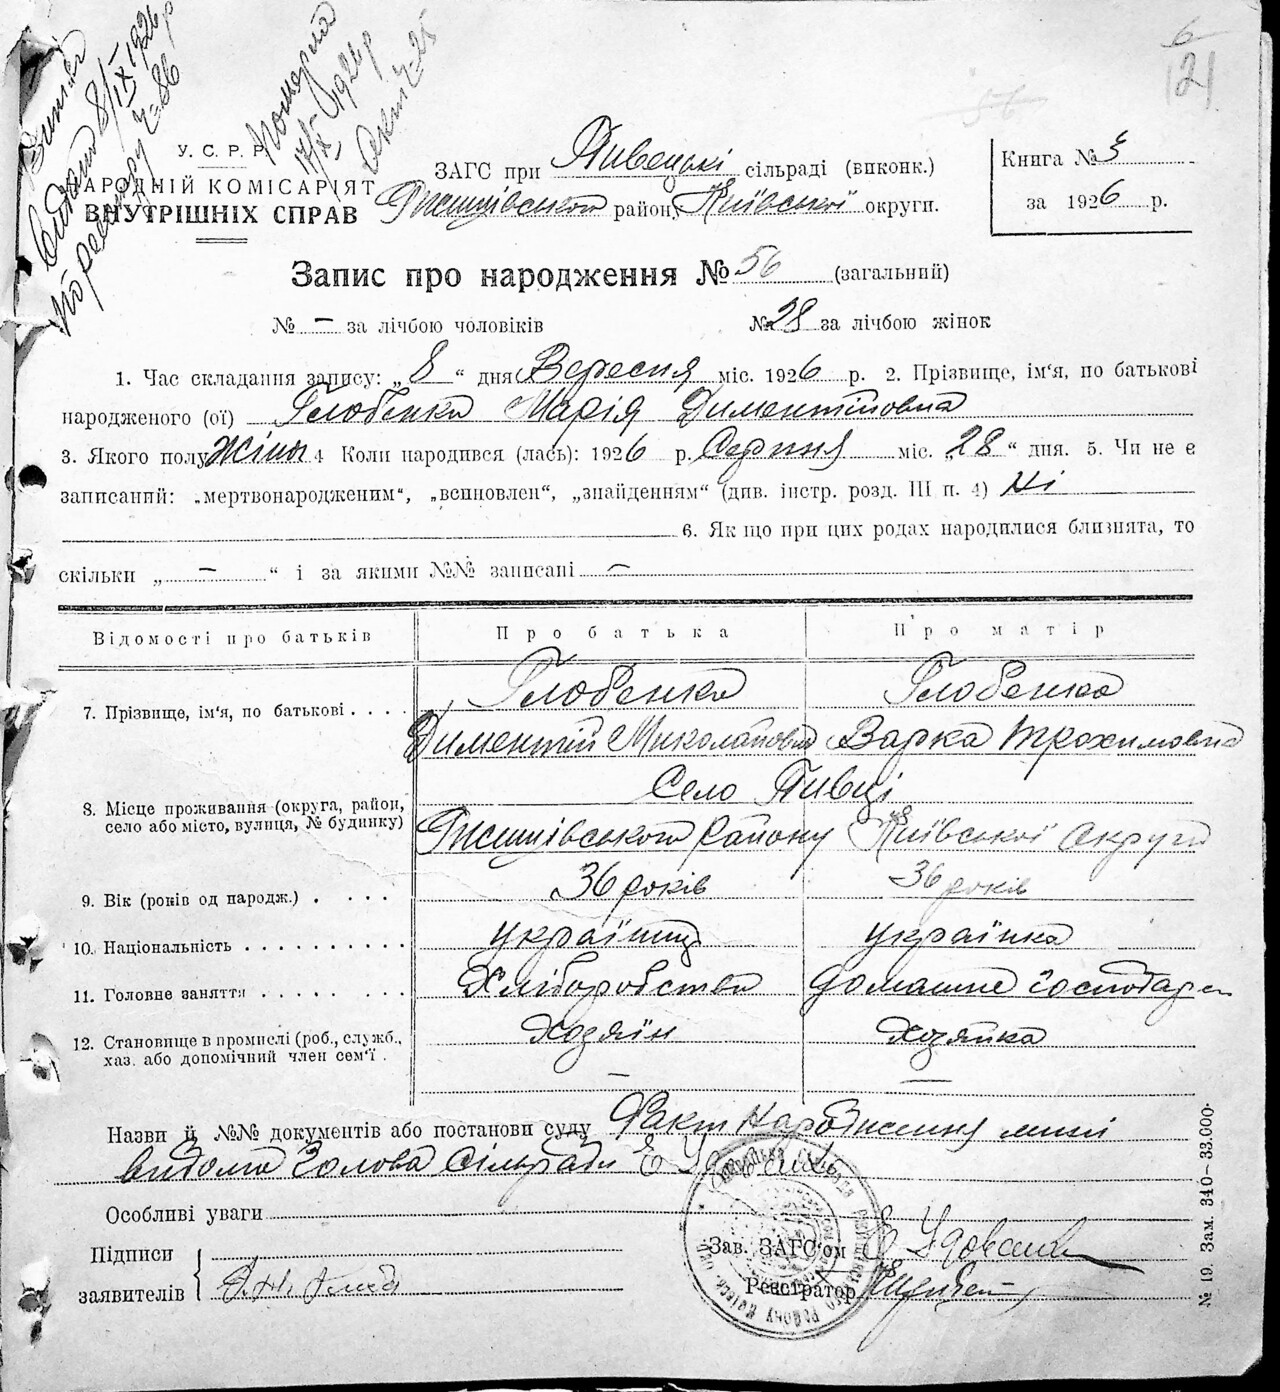 6
121
56
Витяг
Видано 8/IX 1926 р
по реєстру Ч-86
Померла
17/X 1926 р
акт Ч-25
У. С. Р. Р.
НАРОДНІЙ КОМІСАРІЯТ
ВНУТРІШНІХ СПРАВ
ЗАГС при Пивецькі сільраді (виконк.)
Ржищівського район, Київської округи.
Книга № 3
за 1926 р.
Запис про народження № 56 (загальний)
№ — за лічбою чоловіків № 28 за лічбою жінок
1. Час складання запису: „ 8 “ дня Вересня міс. 1926 р. 2. Прізвище, ім'я, по батькові
народженого (ої) Глобенко Марія Диментіовна
3. Якого полу Жіноч 4 Коли народився (лась): 1926 р. Серпня міс. „28“ дня. 5. Чи не є
записаний: „мертвонародженим“, „всиновлен“, „знайденням“ (див. інстр. розд. III п. 4) Ні
6. Як що при цих родах народилися близнята, то
скільки „ — “ і за якими №№ записані —
Відомості про батьків Про батька Про матір
7. Прізвище, ім'я, по батькові . . . . Глобенко Глобенко
Диментій Миколайович Варка Трохимовна
Село Пивці
8. Місце проживання (округа, район,
село або місто, вулиця, № будинку) Ржищівського Району Київської Округи
9. Вік (років од народж.) . . . . 36 років 36 років
10. Національність . . . . . . . . . . українець українка
11. Головне заняття . . . . . . . Хліборобство домашне господар
12. Становище в промислі (роб., служб.,
хаз. або допомічний член сем'ї . хозяїн хозяйка
— —
Назви й №№ документів або постанови суду Факт народження мині
відомо Голова Сільради Е
Особливі уваги
Підписи
заявителів
Зав. ЗАГС'ом
Реєстратор
№ 19. Зам. 340—33.000.